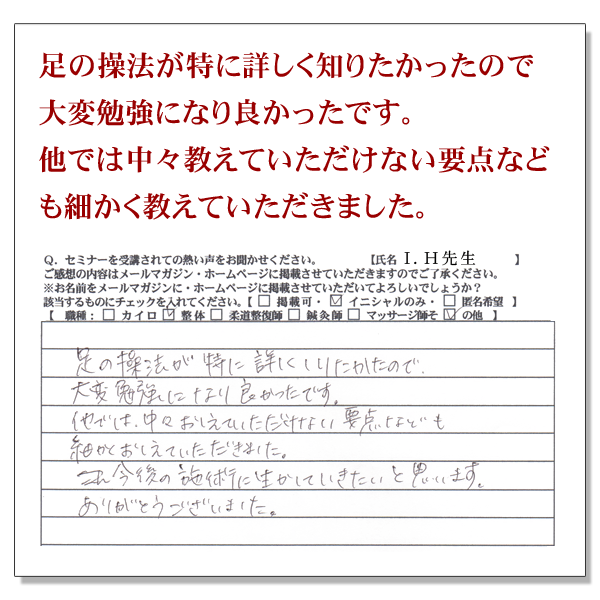 足の操法が特に詳しく知りたかったので
大変勉強になり良かったです。
他では中々教えていただけない要点など
も細かく教えていただきました。
Q．セミナーを受講されての熱い声をお聞かせください。 【氏名 I.H先生 】
ご感想の内容はメールマガジン・ホームページに掲載させていただきますのでご了承ください。
※お名前をメールマガジンに・ホームページに掲載させていただいてよろしいでしょうか？
該当するものにチェックを入れてください。【 □ 掲載可・ ☑ イニシャルのみ・ □ 匿名希望 】
【 職種： □ カイロ ☑ 整体 □ 柔道整復師 □ 鍼灸師 □ マッサージ師そ ☑ の他 】
足の操法が特に詳しくしりたかたので、
大変勉強になり良かったです。
他では、中々おしえていただけない要点なども
細かくおしえていただきました。
これ今後の施術に生かしていきたいと思います。
ありがとうございました。